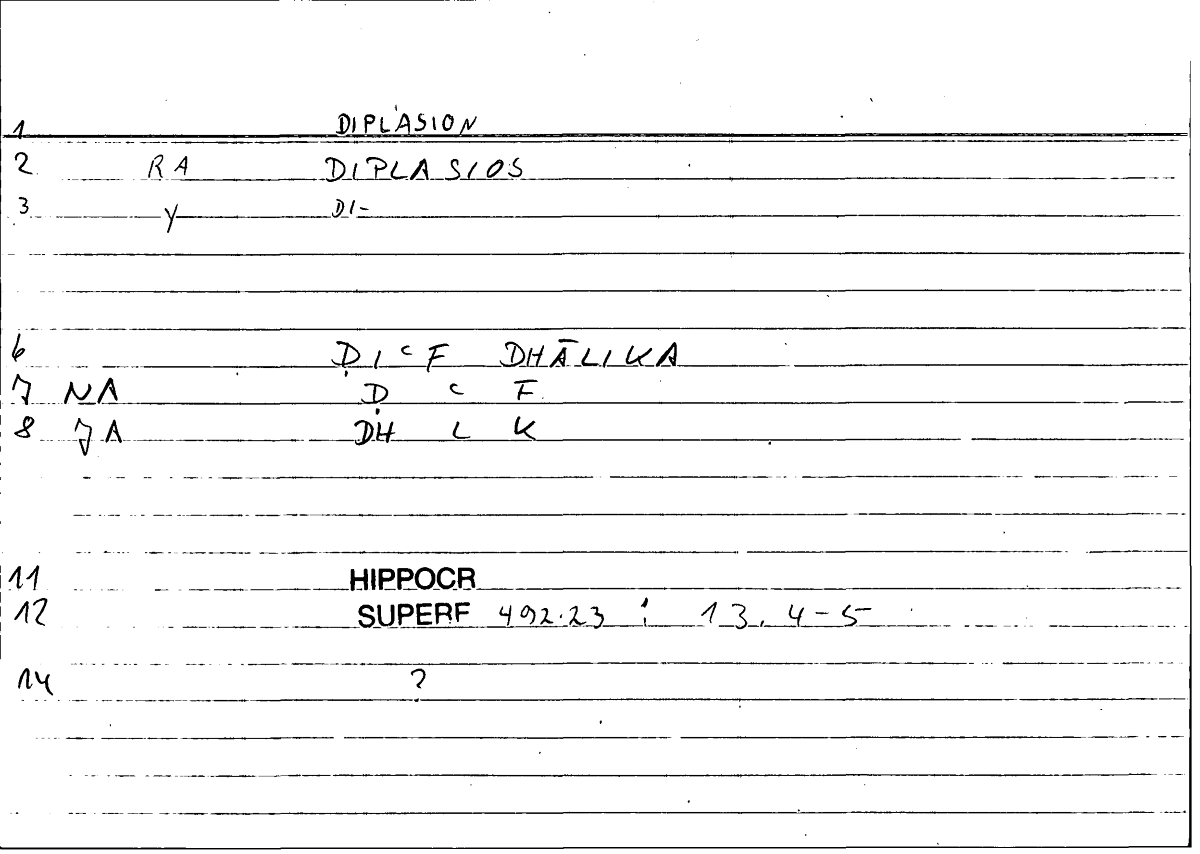 1 DIPLASION
2 RA DIPLASIOS
3 Y DI-
6 ḌIᶜF DHĀLIKA
7 NA Ḍ ᶜ F
8 JA ḎH L K
11 HIPPOCR
12 SUPERF 492.23 : 13.4-5
14 ?